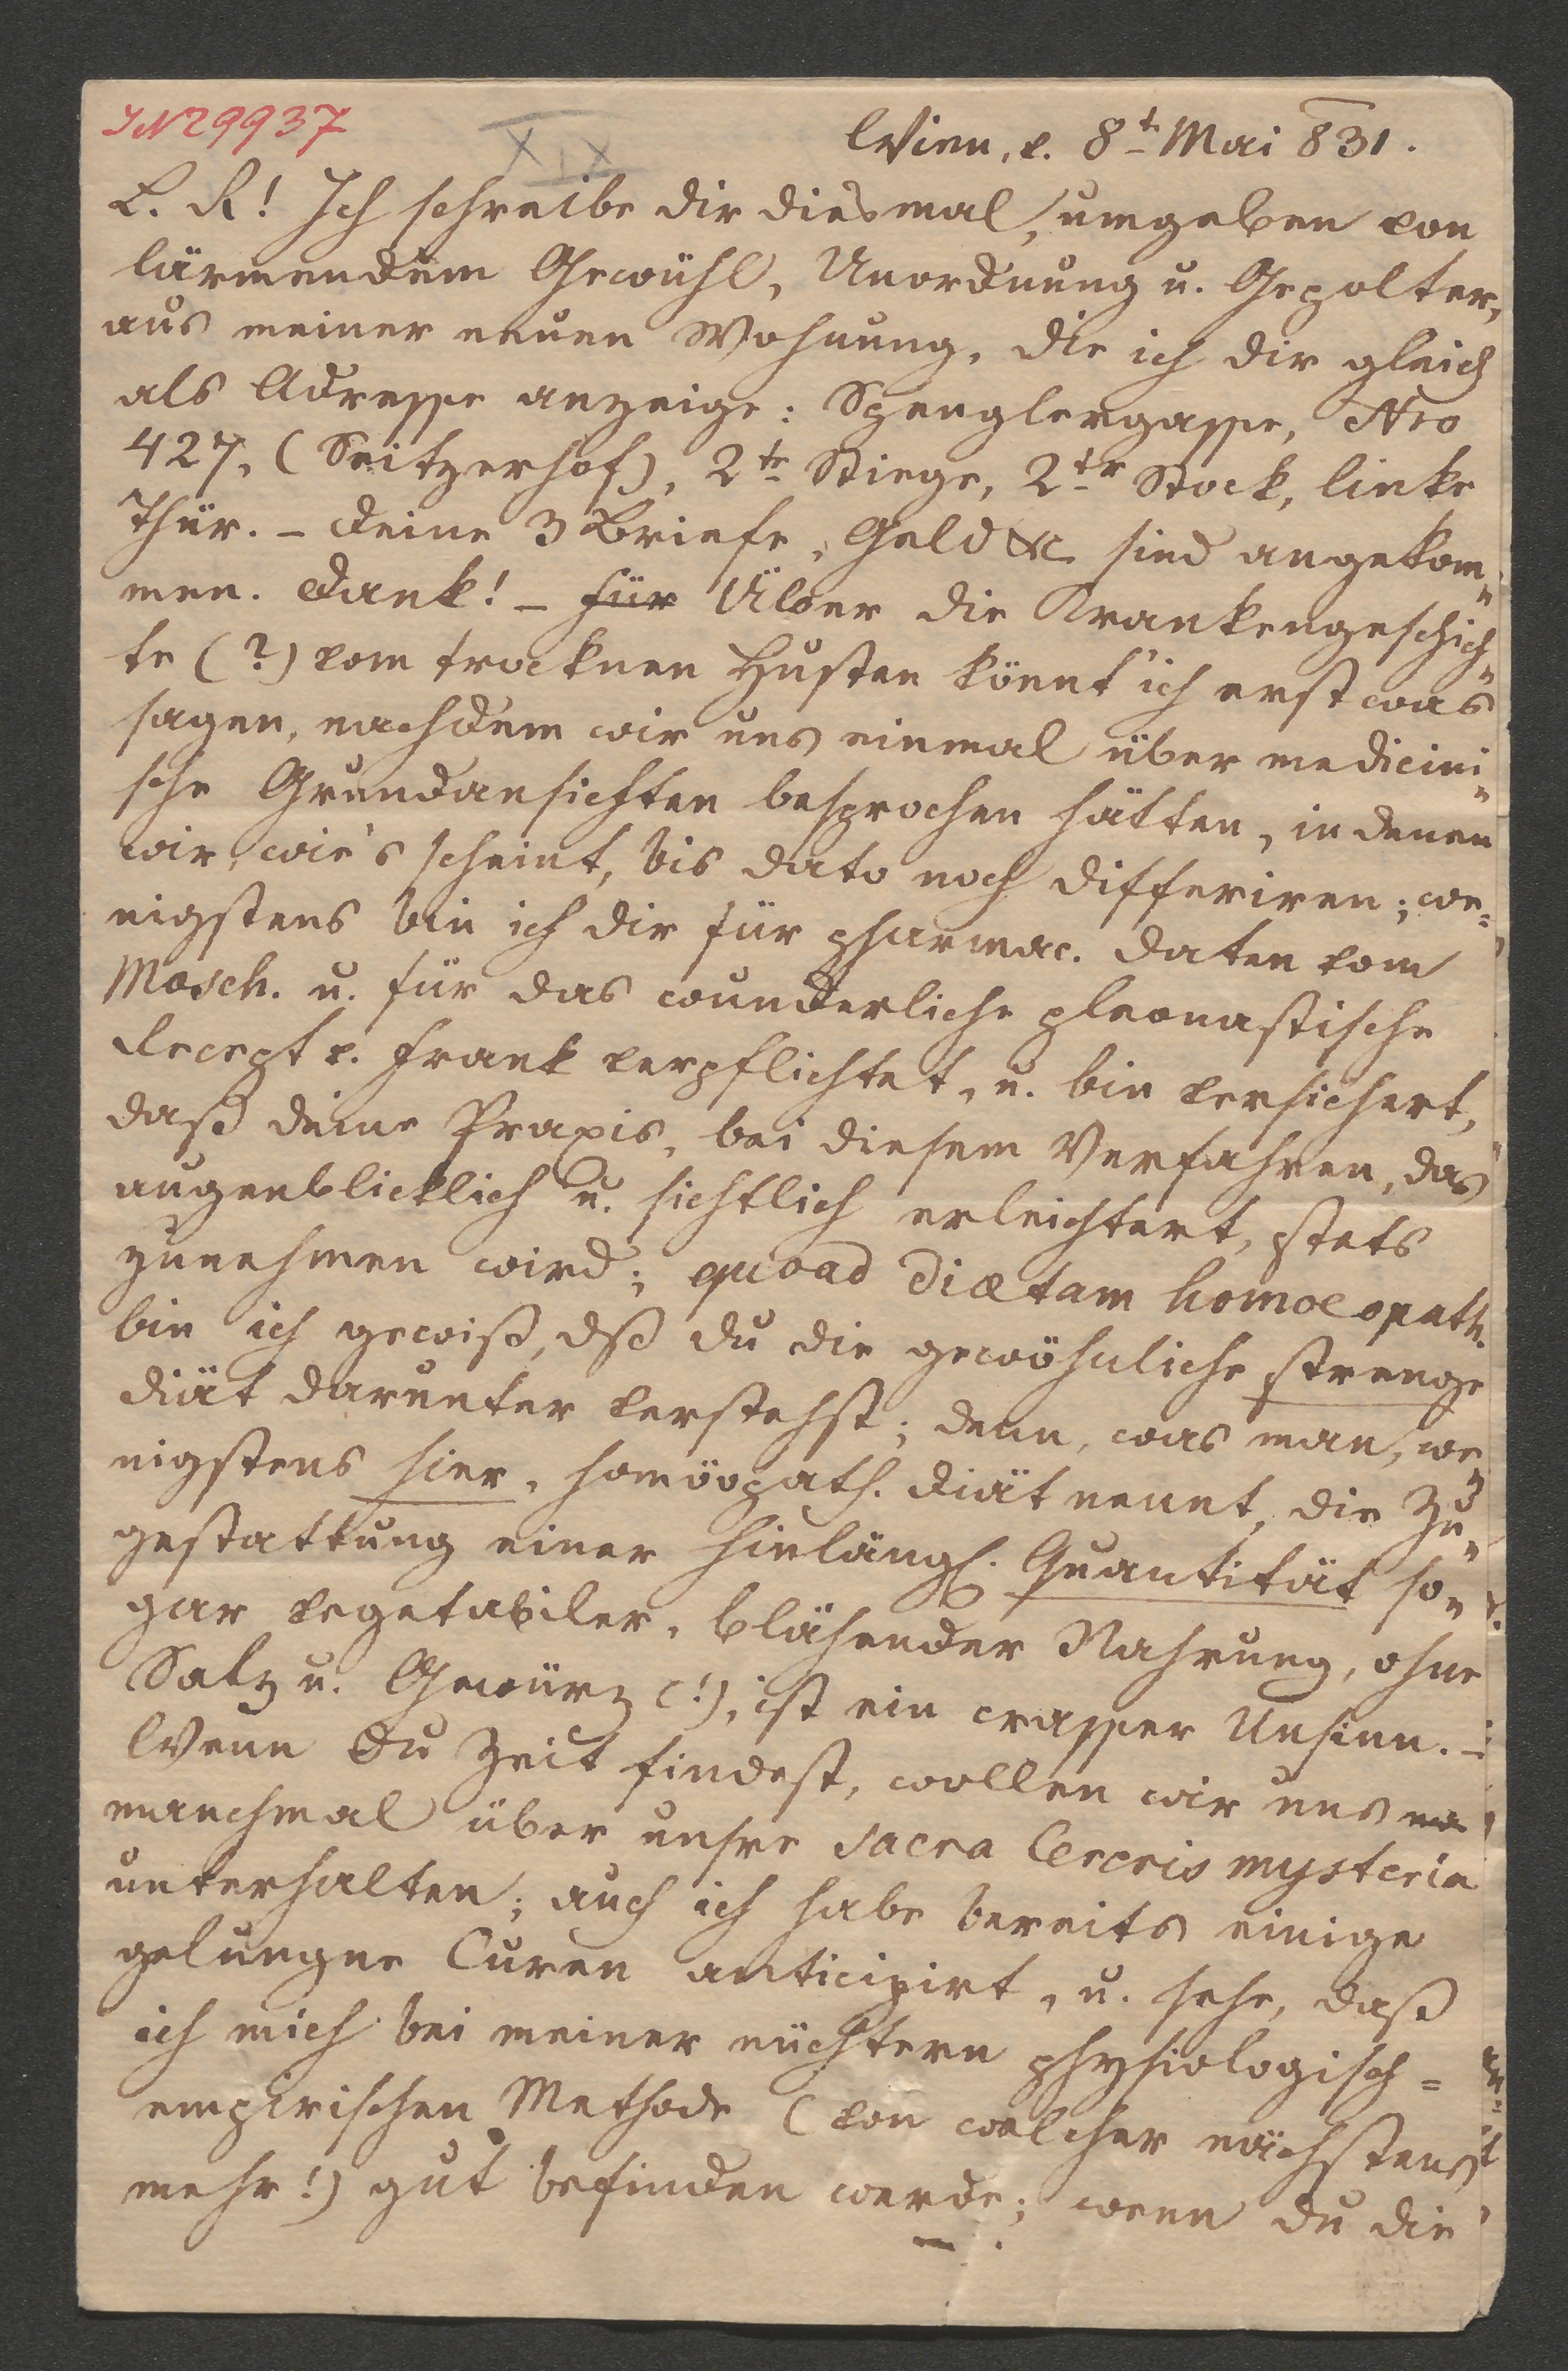 IN 29937
XIX
Wien, v. 8t Mai 831.
L. R! Ich schreibe dir diesmal, umgeben von
lärmendem Gewühl, Unordnung u. Gepolter,
aus meiner neuen Wohnung, die ich dir gleich
als Adresse anzeige: Spenglergasse, Nro
427, (Seitzerhof), 2te Stiege, 2tr Stock, linke
Thür. – Deine 3 Briefe, Geld &c sind angekom„
men. Dank! – für Über die Krankengeschich„
te (?) vom trocknen Husten könnt' ich erst was
sagen, nachdem wir uns einmal über medicini„
sche Grundansichten besprochen hätten, in denen
wir, wie's scheint, bis dato noch differiren; we=
nigstens bin ich dir für pharmac. Daten vom
Mosch. u. für das wunderliche pleonastische
Recept v. Frank verpflichtet, u. bin versichert,
daß deine Praxis, bei diesem Verfahren, das
augenblicklich u. sichtlich erleichtert, stets
zunehmen wird; quoad diætam homoeopath.
bin ich gewiß, dß du die gewöhnliche strenge
Diät darunter verstehst; denn, was man, we„
nigstens hier, homöopath. Diät nennt, die Zu„
gestattung einer hinlängl. Quantität so„
gar vegetabiler, blähender Nahrung, ohne
Salz u. Gewürz (!), ist ein crasser Unsinn. –
Wenn du Zeit findest, wollen wir uns ma
manchmal über unsre sacra Cereris mysteria
unterhalten; auch ich habe bereits einige
gelungne Curen anticipirt, u. sehe, daß
ich mich bei meiner nüchtern physiologisch=
empirischen Methode (von welcher nächstens
mehr!) gut befinden werde; wenn du die